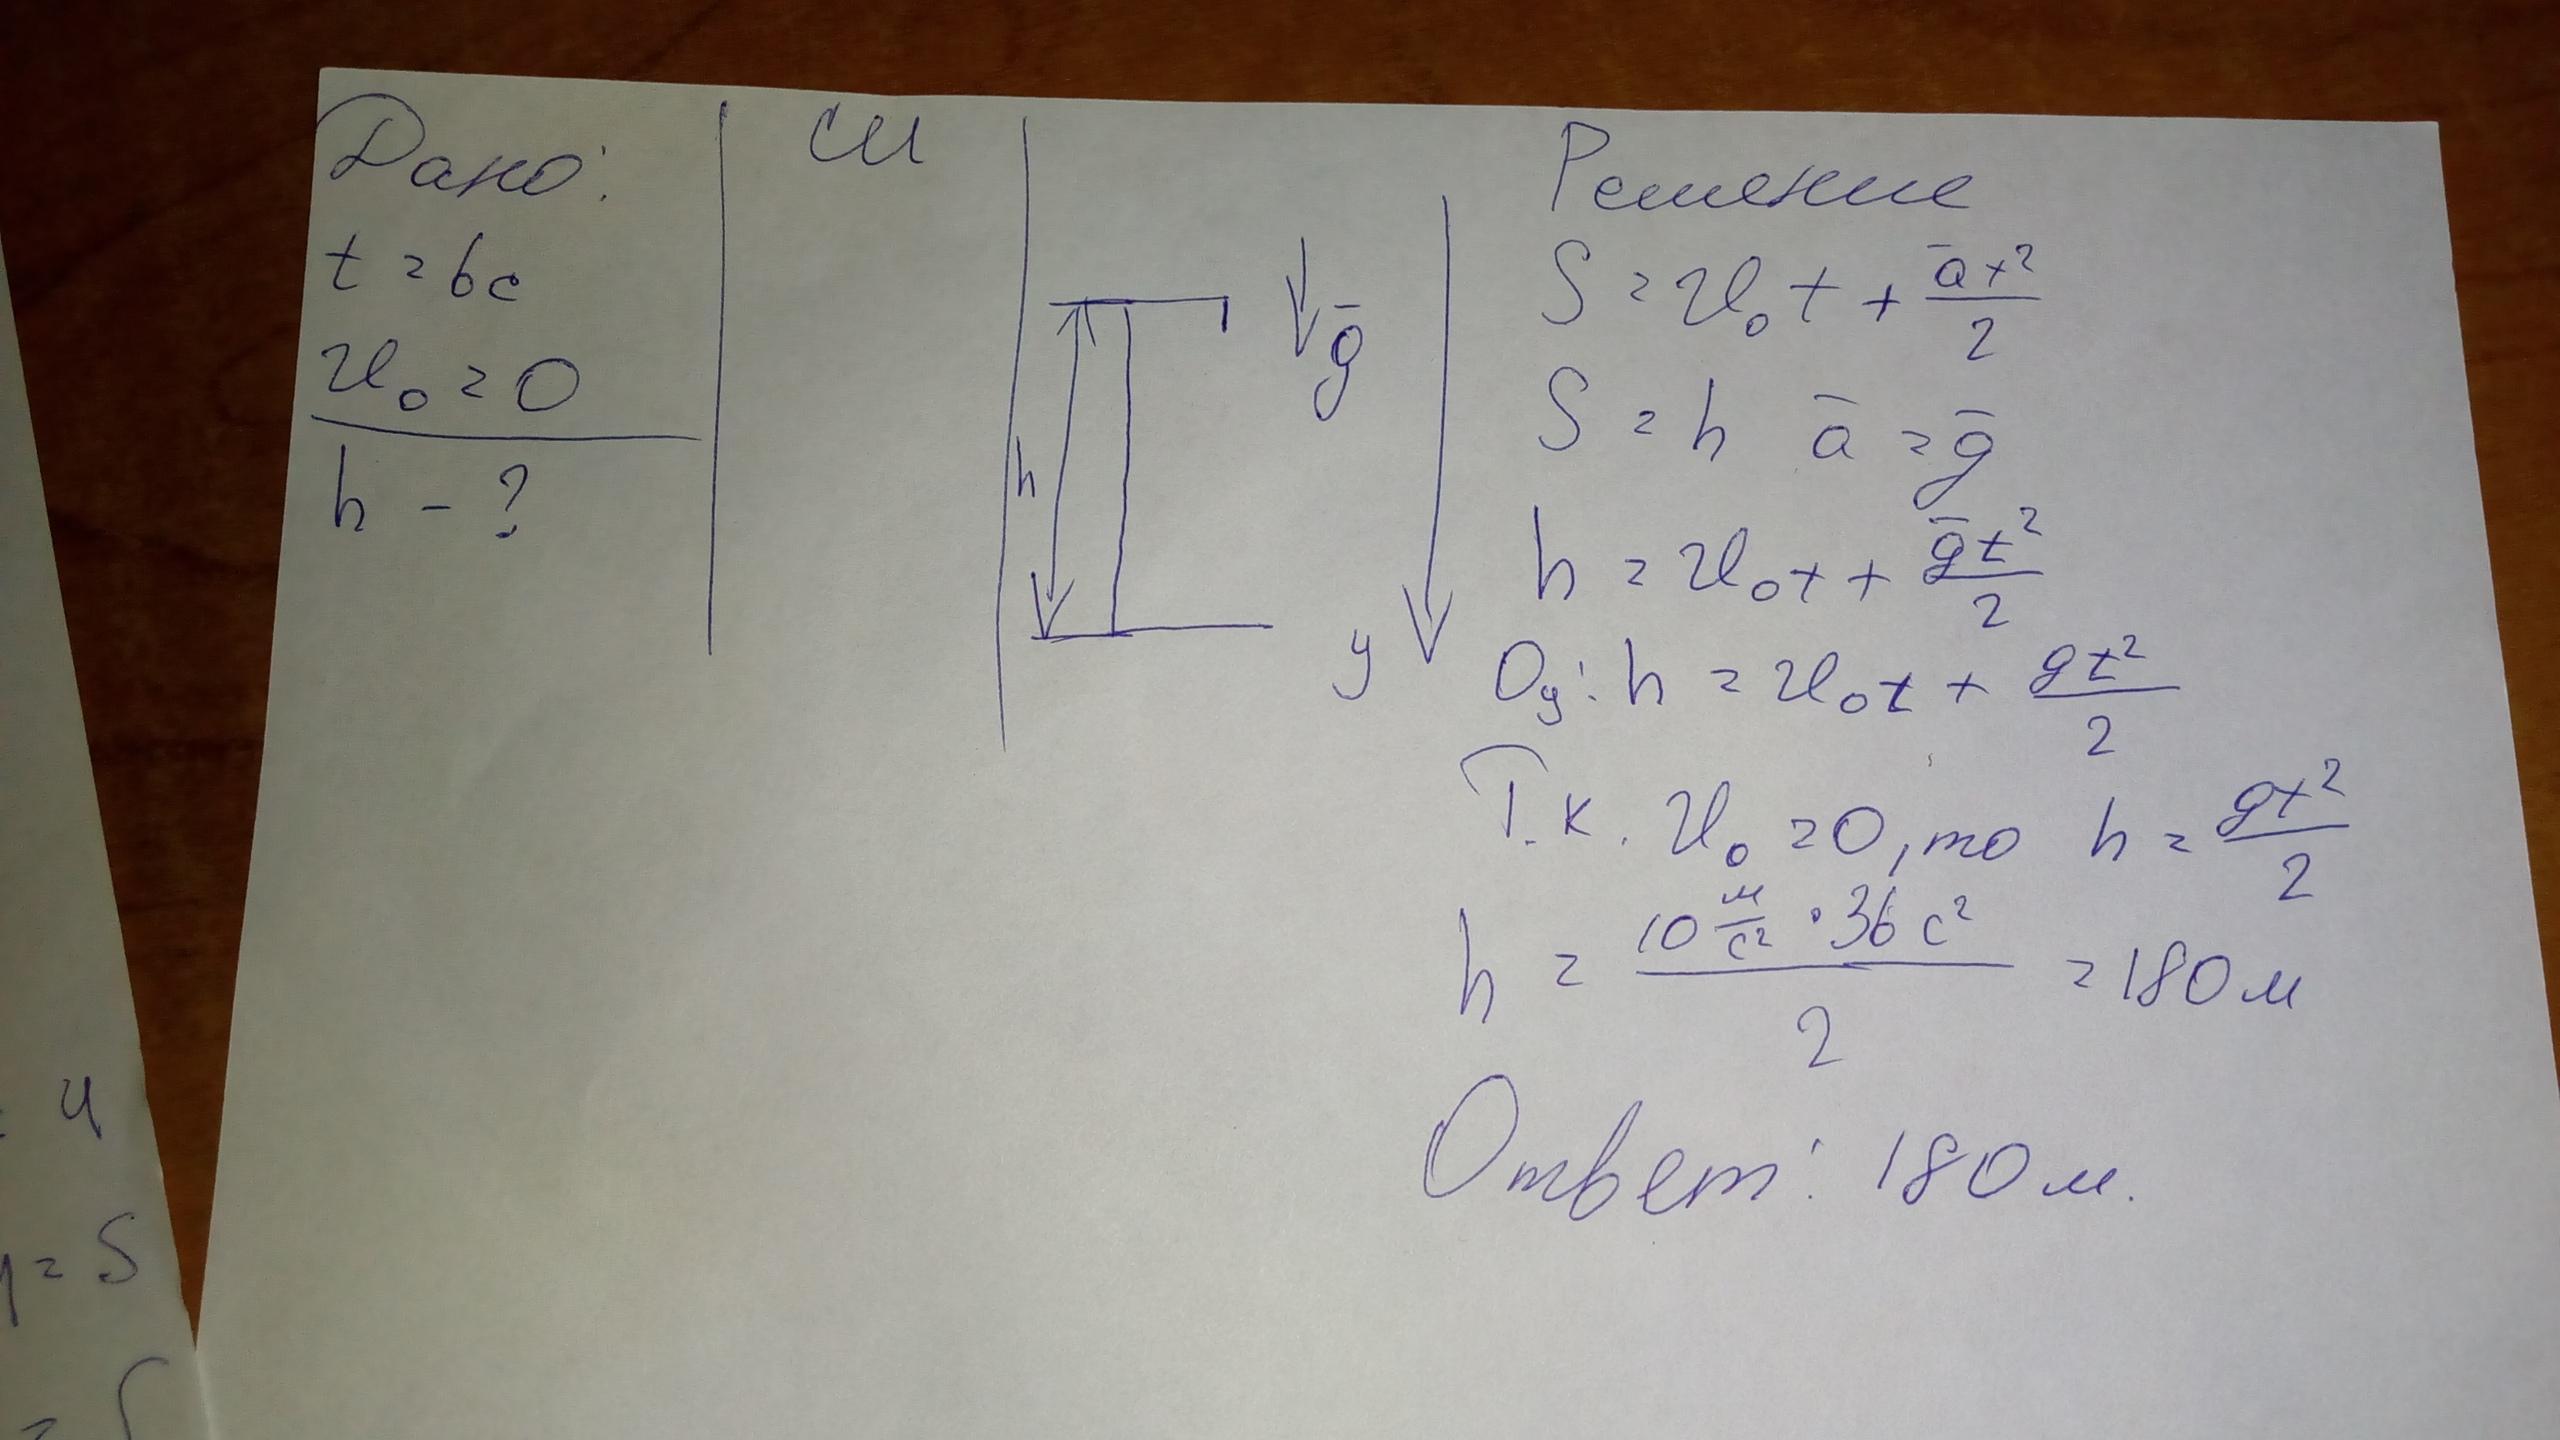 Дано:
t = 6с
v₀ = 0
h - ?
СИ
h
g̅
y
Решение
S = v₀t + a̅t²/2
S = h a̅ = g̅
h = v₀t + g̅t²/2
Oy: h = v₀t + gt²/2
Т.к. v₀ = 0, то h = gt²/2
h = 10 м/с² · 36 с² / 2 = 180 м
Ответ: 180 м.
= 4
= 5